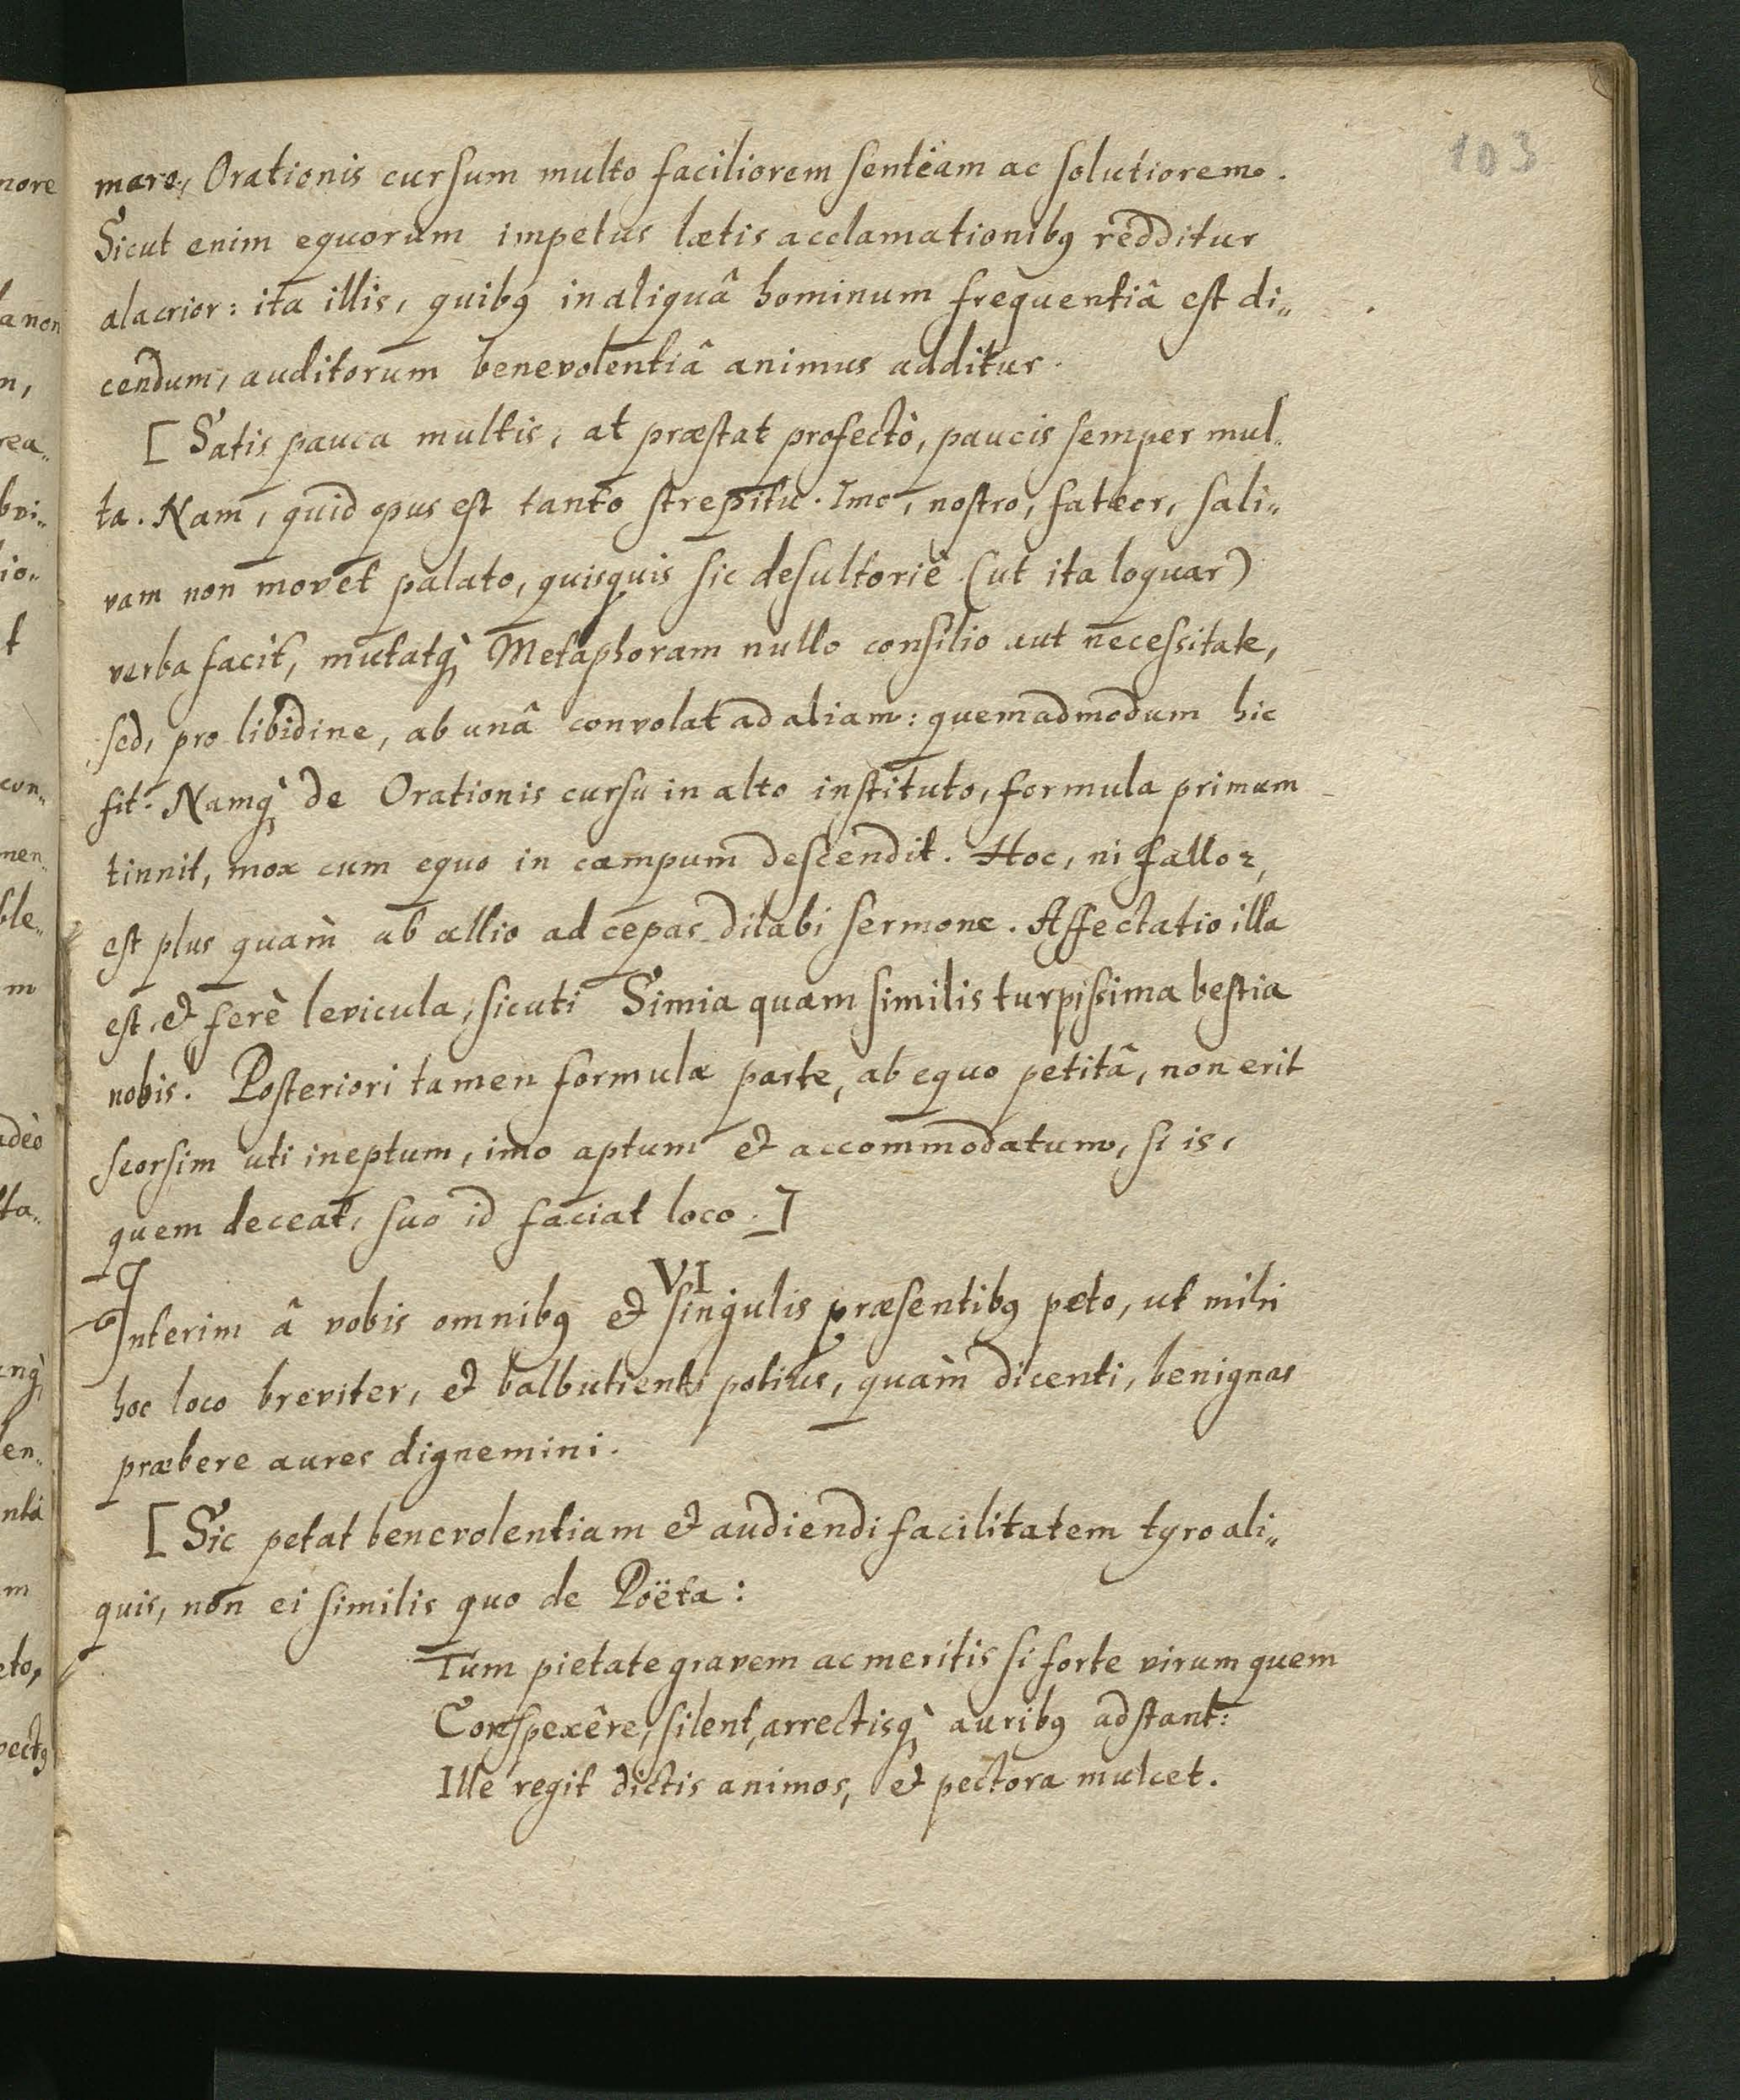 103
mare, Orationis cursum multo faciliorem sentiam ac solutiorem.
Sicut enim equorum impetus lætis acclamationibꝰ redditur
alacrior: ita illis, quibꝰ in aliquâ hominum frequentiâ est di„
cendum, auditorum benevolentiâ animus additur.
[Satis pauca multis, at præstat profectò, paucis semper mul„
ta. Nam, quid opus est tanto strepitu. Imo, nostro, fateor, sali„
vam non movet palato, quisquis sic desultoriè (ut ita loquar)
verba facit, mutatq̀ Metaphoram nullo consilio aut necessitate,
sed, pro libidine, ab unâ convolat ad aliam: quemadmodum hic
fit. Namq̀ de Orationis cursu in alto instituto, formula primum
tinnit, mox cum equo in campum descendit. Hoc, ni fallor,
est plus quàm ab allio ad cepas dilabi sermone. Affectatio illa
est, & ferè levicula, sicuti Simia quam similis turpissima bestia
nobis. Posteriori tamen formulæ parte, ab equo petitâ, non erit
seorsim uti ineptum, imo aptum & accommodatum, si is,
quem deceat, suo id faciat loco.]
VI
Interim â vobis omnibꝰ & singulis præsentibꝰ peto, ut mihi
hoc loco breviter, & balbutienti potius, quàm dicenti, benignas
præbere aures dignemini.
[Sic petat benevolentiam & audiendi facilitatem tyro ali„
quis, non ei similis quo de Poëta:
Tum pietate gravem ac meritis si forte virum quem
Conspexêre, silent, arrectisq̀ auribꝰ adstant:
Ille regit dictis animos, & pectora mulcet.